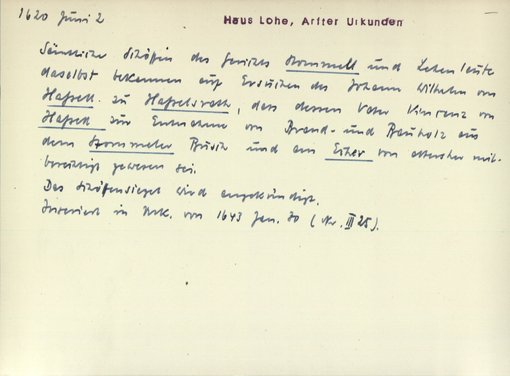 1620 Juni 2
Haus Lohe, Arfter Urkunden
Sämtliche Schöffen des Gerichts Stommell und Lehenleute
daselbst bekennen auf Ersuchen des Johann Wilhelm von
Hassell zu Hasselsrath, dass dessen Vater Vincenz von
Hassell zur Entnahme von Brand- und Bauholz aus
dem Stommeler Busch und am von altersher mit-
berechtigt gewesen sei.
Das Schöffensiegel wird angekündigt.
Inseriert in Urk. von 1643 Jan. 30 (Nr. III 25).